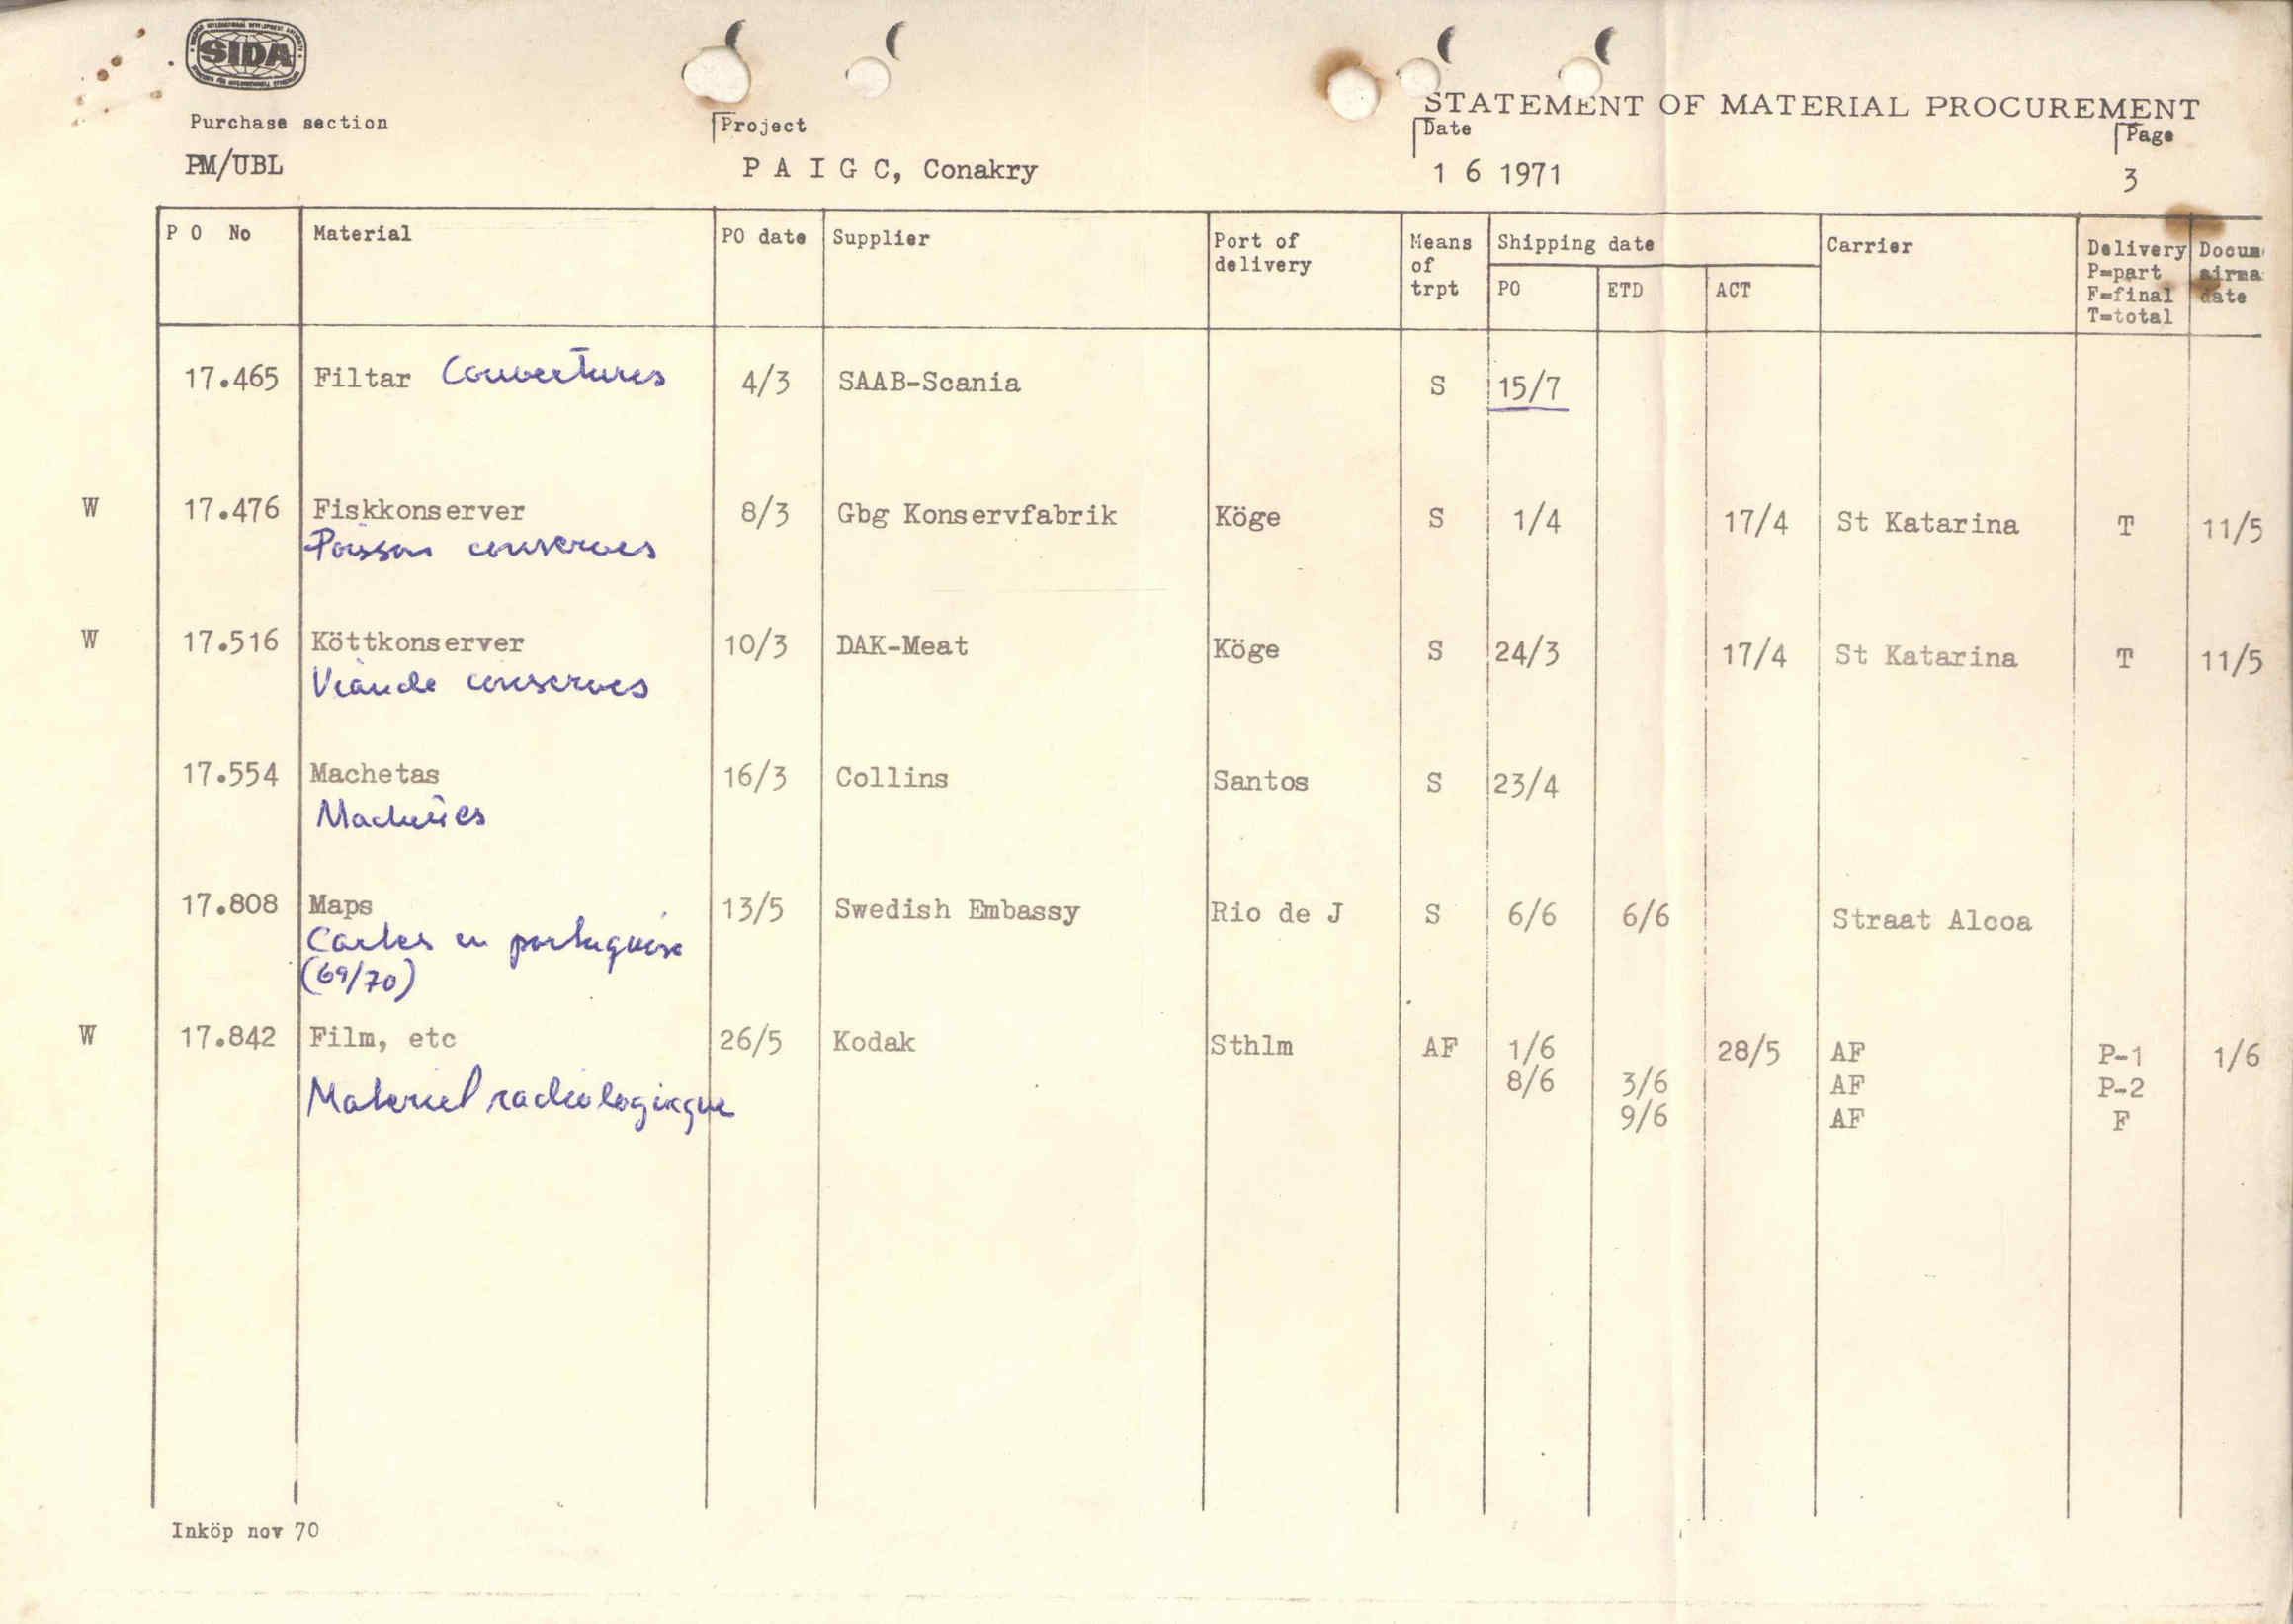 SIDA
STATEMENT OF MATERIAL PROCUREMENT
Purchase section Project Date Page
PM/UBL P A I G C, Conakry 1 6 1971 3
P O No Material PO date Supplier Port of delivery Means of trpt Shipping date PO ETD ACT Carrier Delivery P=part F=final T=total Docum airma date
17.465 Filtar Couvertures 4/3 SAAB-Scania S 15/7
W 17.476 Fiskkonserver 8/3 Gbg Konservfabrik Köge S 1/4 17/4 St Katarina T 11/5
Poisson conserves
W 17.516 Köttkonserver 10/3 DAK-Meat Köge S 24/3 17/4 St Katarina T 11/5
Viande conserves
17.554 Machetas 16/3 Collins Santos S 23/4
17.808 Maps 13/5 Swedish Embassy Rio de J S 6/6 6/6 Straat Alcoa
Cartes en portugaise
(69/70)
W 17.842 Film, etc 26/5 Kodak Sthlm AF 1/6 28/5 AF P-1 1/6
8/6 3/6 AF P-2
Materiel radiologique 9/6 AF F
Inköp nov 70